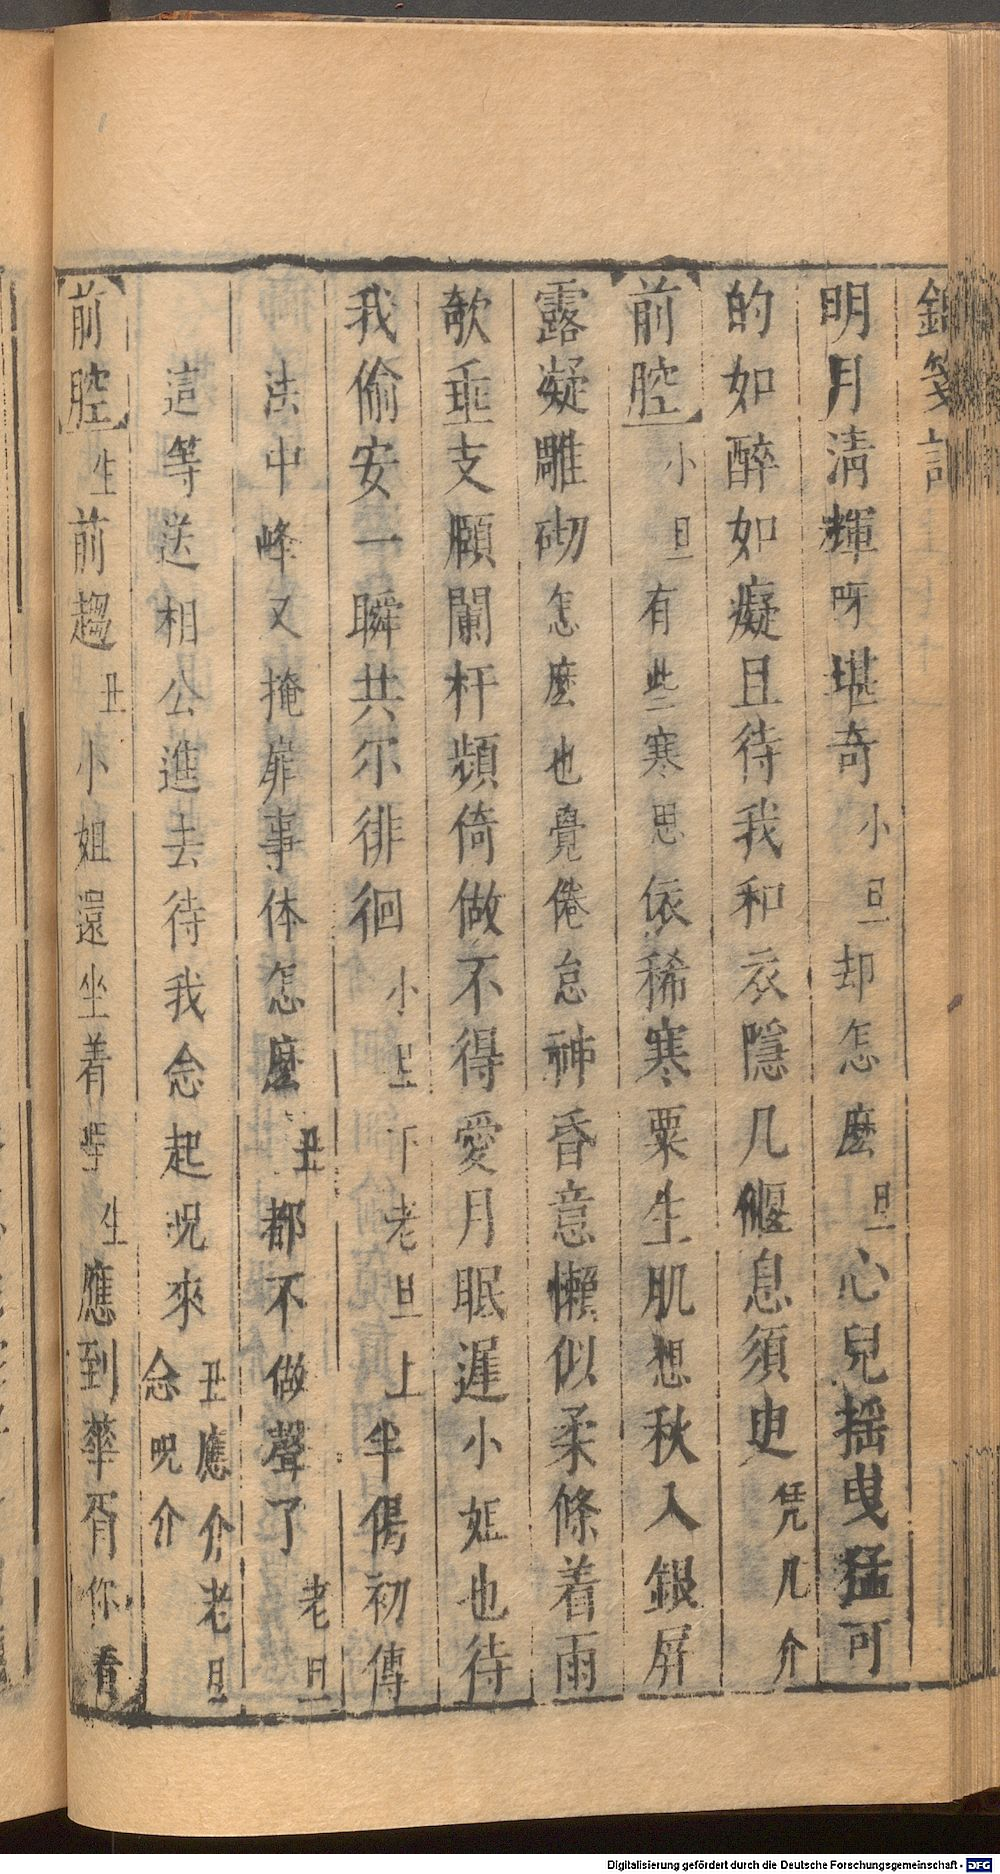 明月淸輝呀堪奇小旦却怎麽旦心兒搖曳猛可
的如醉如癡且待我和衣隱几偃息須臾凭几介
前腔小旦有些寒思依稀寒粟生肌想秋入銀屏
露凝雕砌怎麽也覺倦怠神昏意懶似柔條着雨
欹垂支頤闌杆頻倚做不得愛月眠遲小姐也待
我偷安一瞬共尔徘徊小旦下老旦上半偈初傳
法中峰又掩扉事体怎麽丑都不做聲了老旦
這等送相公進去待我念起呪來丑應介老旦
念呪介
前腔生前趨丑小姐還坐着哩生應到華胥你看
Digitalisierung gefördert durch die Deutsche Forschungsgemeinschaft - DFG